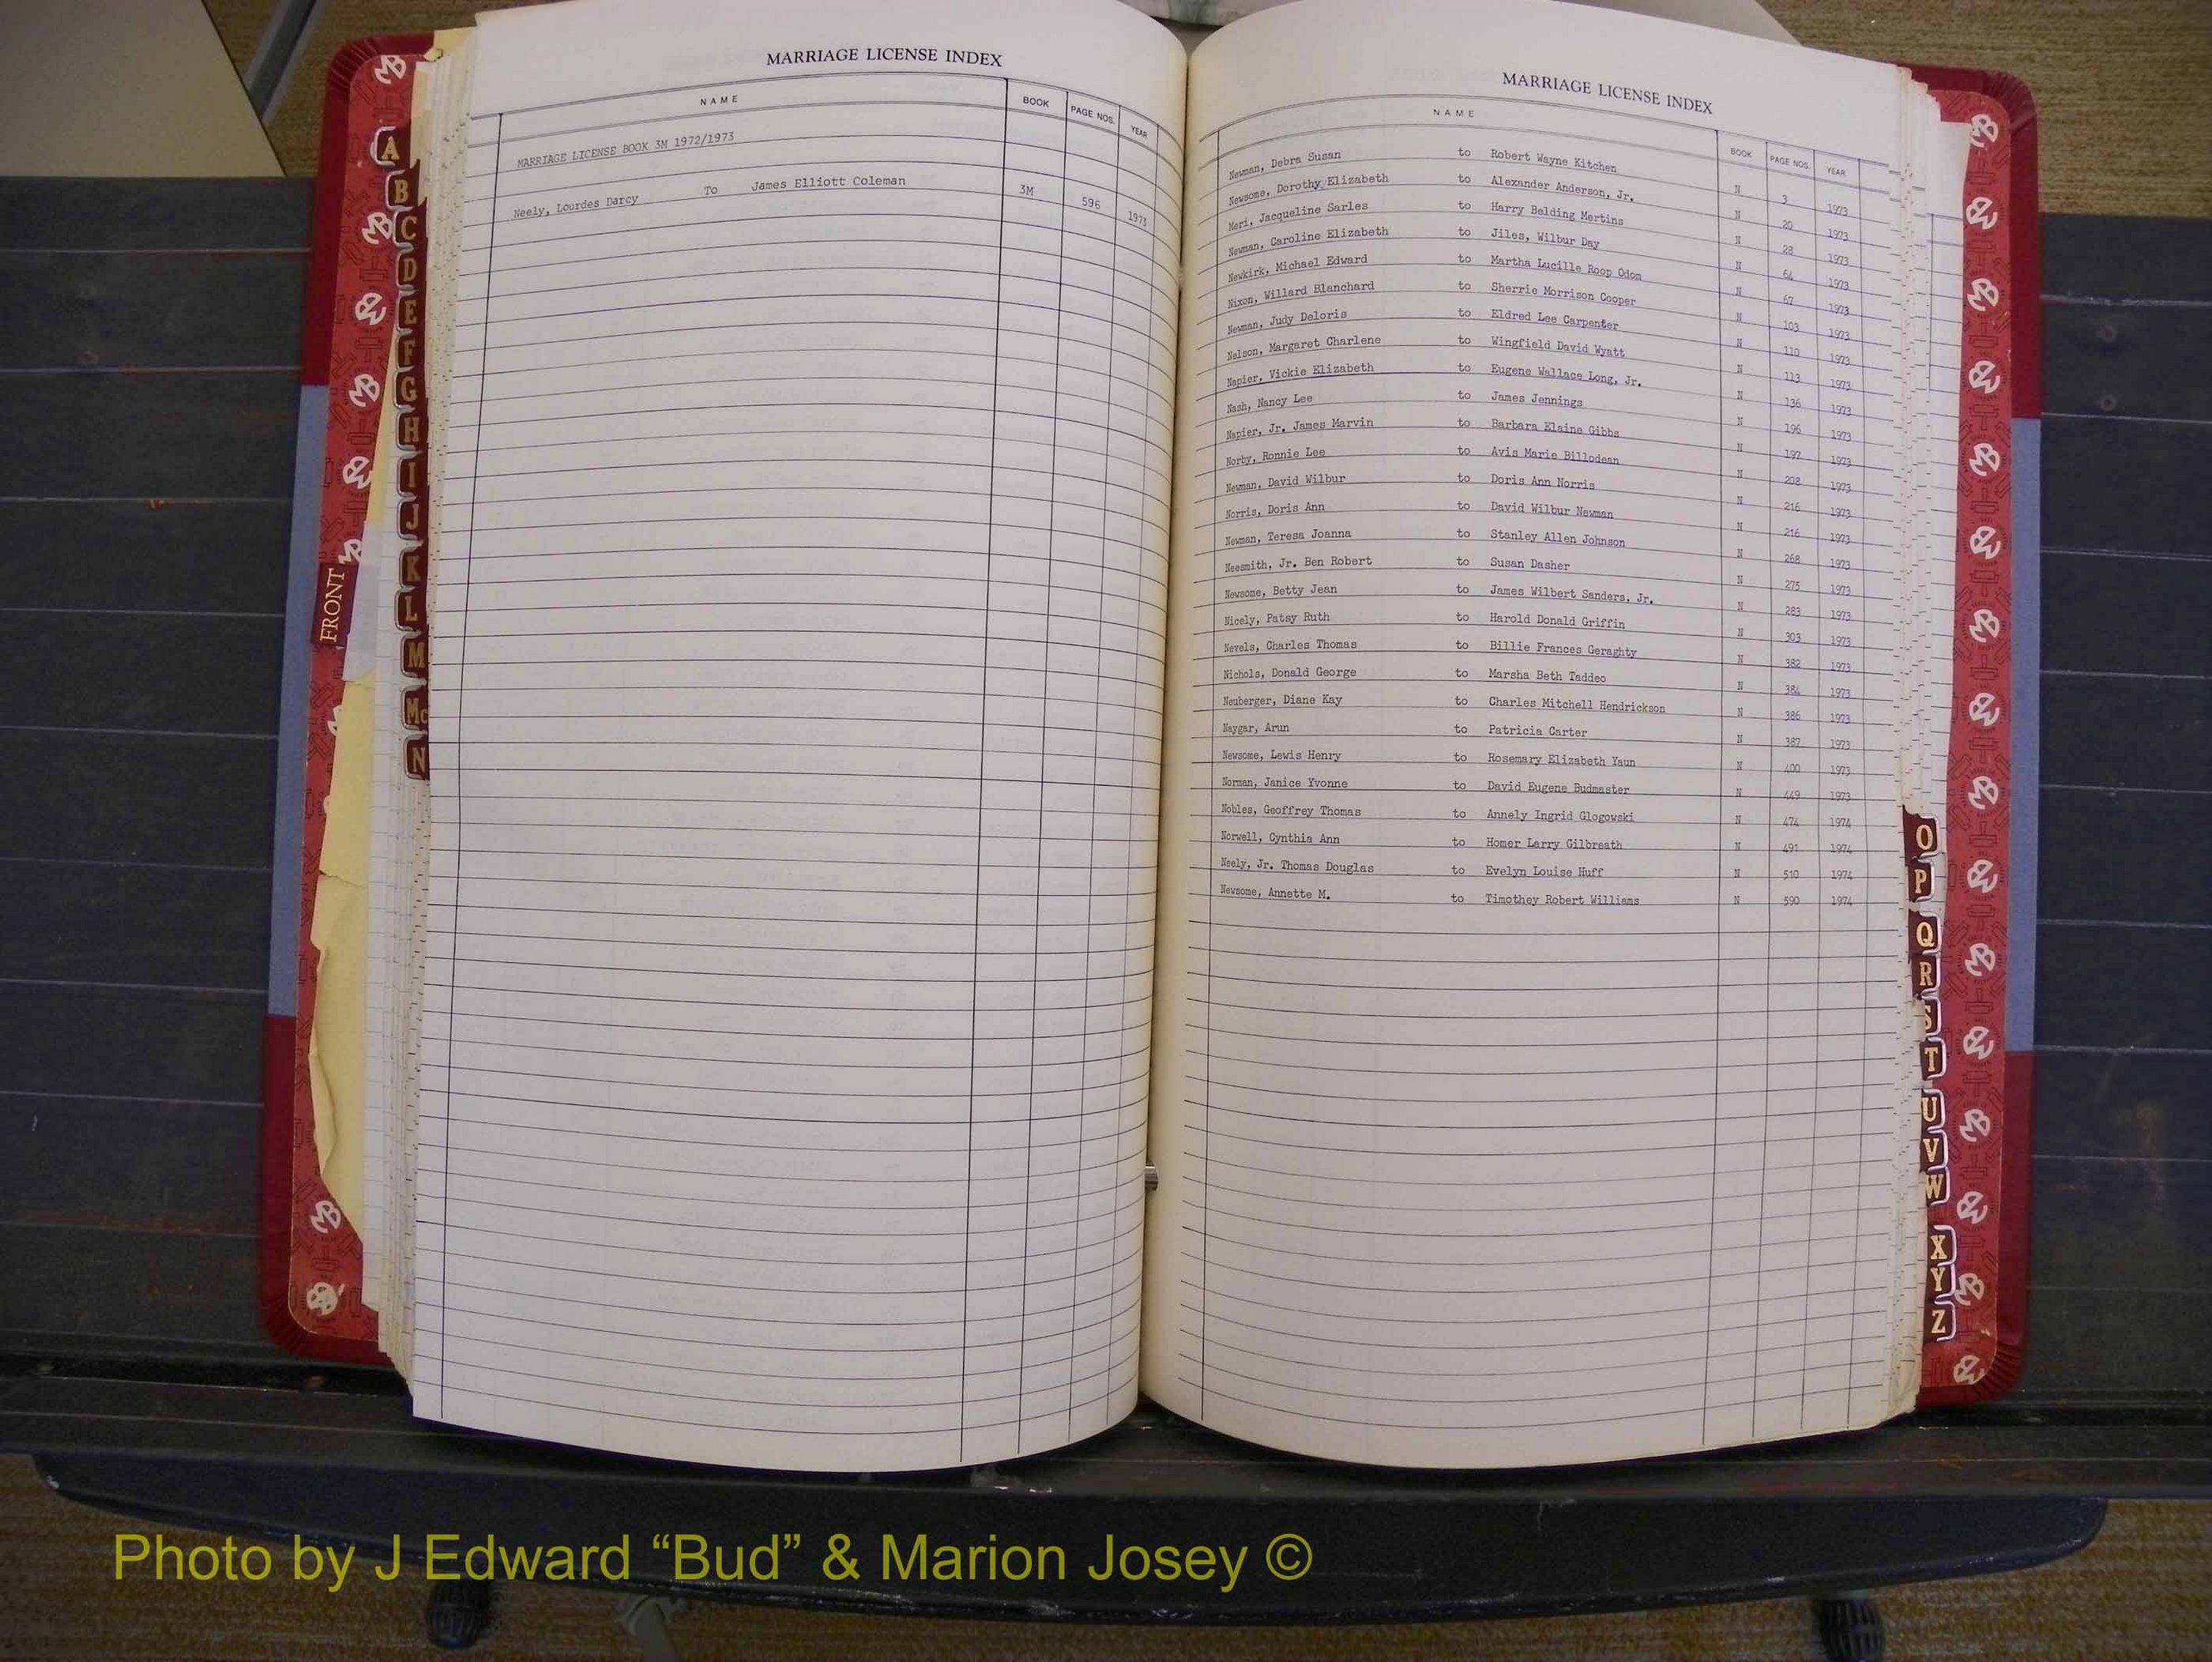 MARRIAGE LICENSE INDEX
NAME BOOK PAGE NOS. YEAR
MARRIAGE LICENSE BOOK 3M 1972/1973
Neely, Lourdes Darcy To James Elliott Coleman 3M 596 1973
MARRIAGE LICENSE INDEX
NAME BOOK PAGE NOS. YEAR
Newman, Debra Susan to Robert Wayne Kitchen N 3 1973
Newsome, Dorothy Elizabeth to Alexander Anderson, Jr. N 20 1973
Neri, Jacqueline Sarles to Harry Belding Mertins N 28 1973
Newman, Caroline Elizabeth to Jiles, Wilbur Day N 64 1973
Newkirk, Michael Edward to Martha Lucille Roop Odom N 67 1973
Nixon, Willard Blanchard to Sherrie Morrison Cooper N 103 1973
Newman, Judy Deloris to Eldred Lee Carpenter N 110 1973
Nelson, Margaret Charlene to Wingfield David Wyatt N 113 1973
Napier, Vickie Elizabeth to Eugene Wallace Long, Jr. N 136 1973
Nash, Nancy Lee to James Jennings N 196 1973
Napier, Jr. James Marvin to Barbara Elaine Gibbs N 197 1973
Norby, Ronnie Lee to Avis Marie Billodean N 208 1973
Newman, David Wilbur to Doris Ann Norris N 216 1973
Norris, Doris Ann to David Wilbur Newman N 216 1973
Newman, Teresa Joanna to Stanley Allen Johnson N 268 1973
Neesmith, Jr. Ben Robert to Susan Dasher N 275 1973
Newsome, Betty Jean to James Wilbert Sanders, Jr. N 283 1973
Nicely, Patsy Ruth to Harold Donald Griffin N 303 1973
Nevels, Charles Thomas to Billie Frances Geraghty N 382 1973
Nichols, Donald George to Marsha Beth Taddeo N 384 1973
Neuberger, Diane Kay to Charles Mitchell Hendrickson N 386 1973
Naygar, Arun to Patricia Carter N 387 1973
Newsome, Lewis Henry to Rosemary Elizabeth Yaun N 400 1973
Norman, Janice Yvonne to David Eugene Budmaster N 449 1973
Nobles, Geoffrey Thomas to Annely Ingrid Glogowski N 474 1974
Norwell, Cynthia Ann to Homer Larry Gilbreath N 491 1974
Neely, Jr. Thomas Douglas to Evelyn Louise Huff N 510 1974
Newsome, Annette M. to Timothey Robert Williams N 590 1974
A
B
C
D
E
F
G
H
I
J
K
L
M
Mc
N
FRONT
O
P
Q
R
S
T
U
V
W
X
Y
Z
Photo by J Edward “Bud” & Marion Josey ©